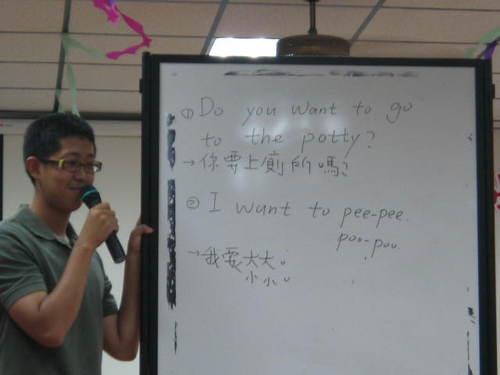 ① Do you want to go
to the potty?
→你要上廁所嗎?
② I want to pee-pee.
poo-poo.
→我要大大。
小小。